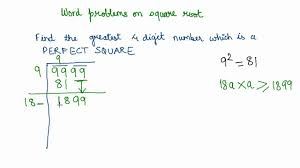 Word problems on square root
Find the greatest 4 digit number which is a
PERFECT SQUARE
9
9 99 99
81
18- 1899
9² = 81
18a × a ≥ 1899